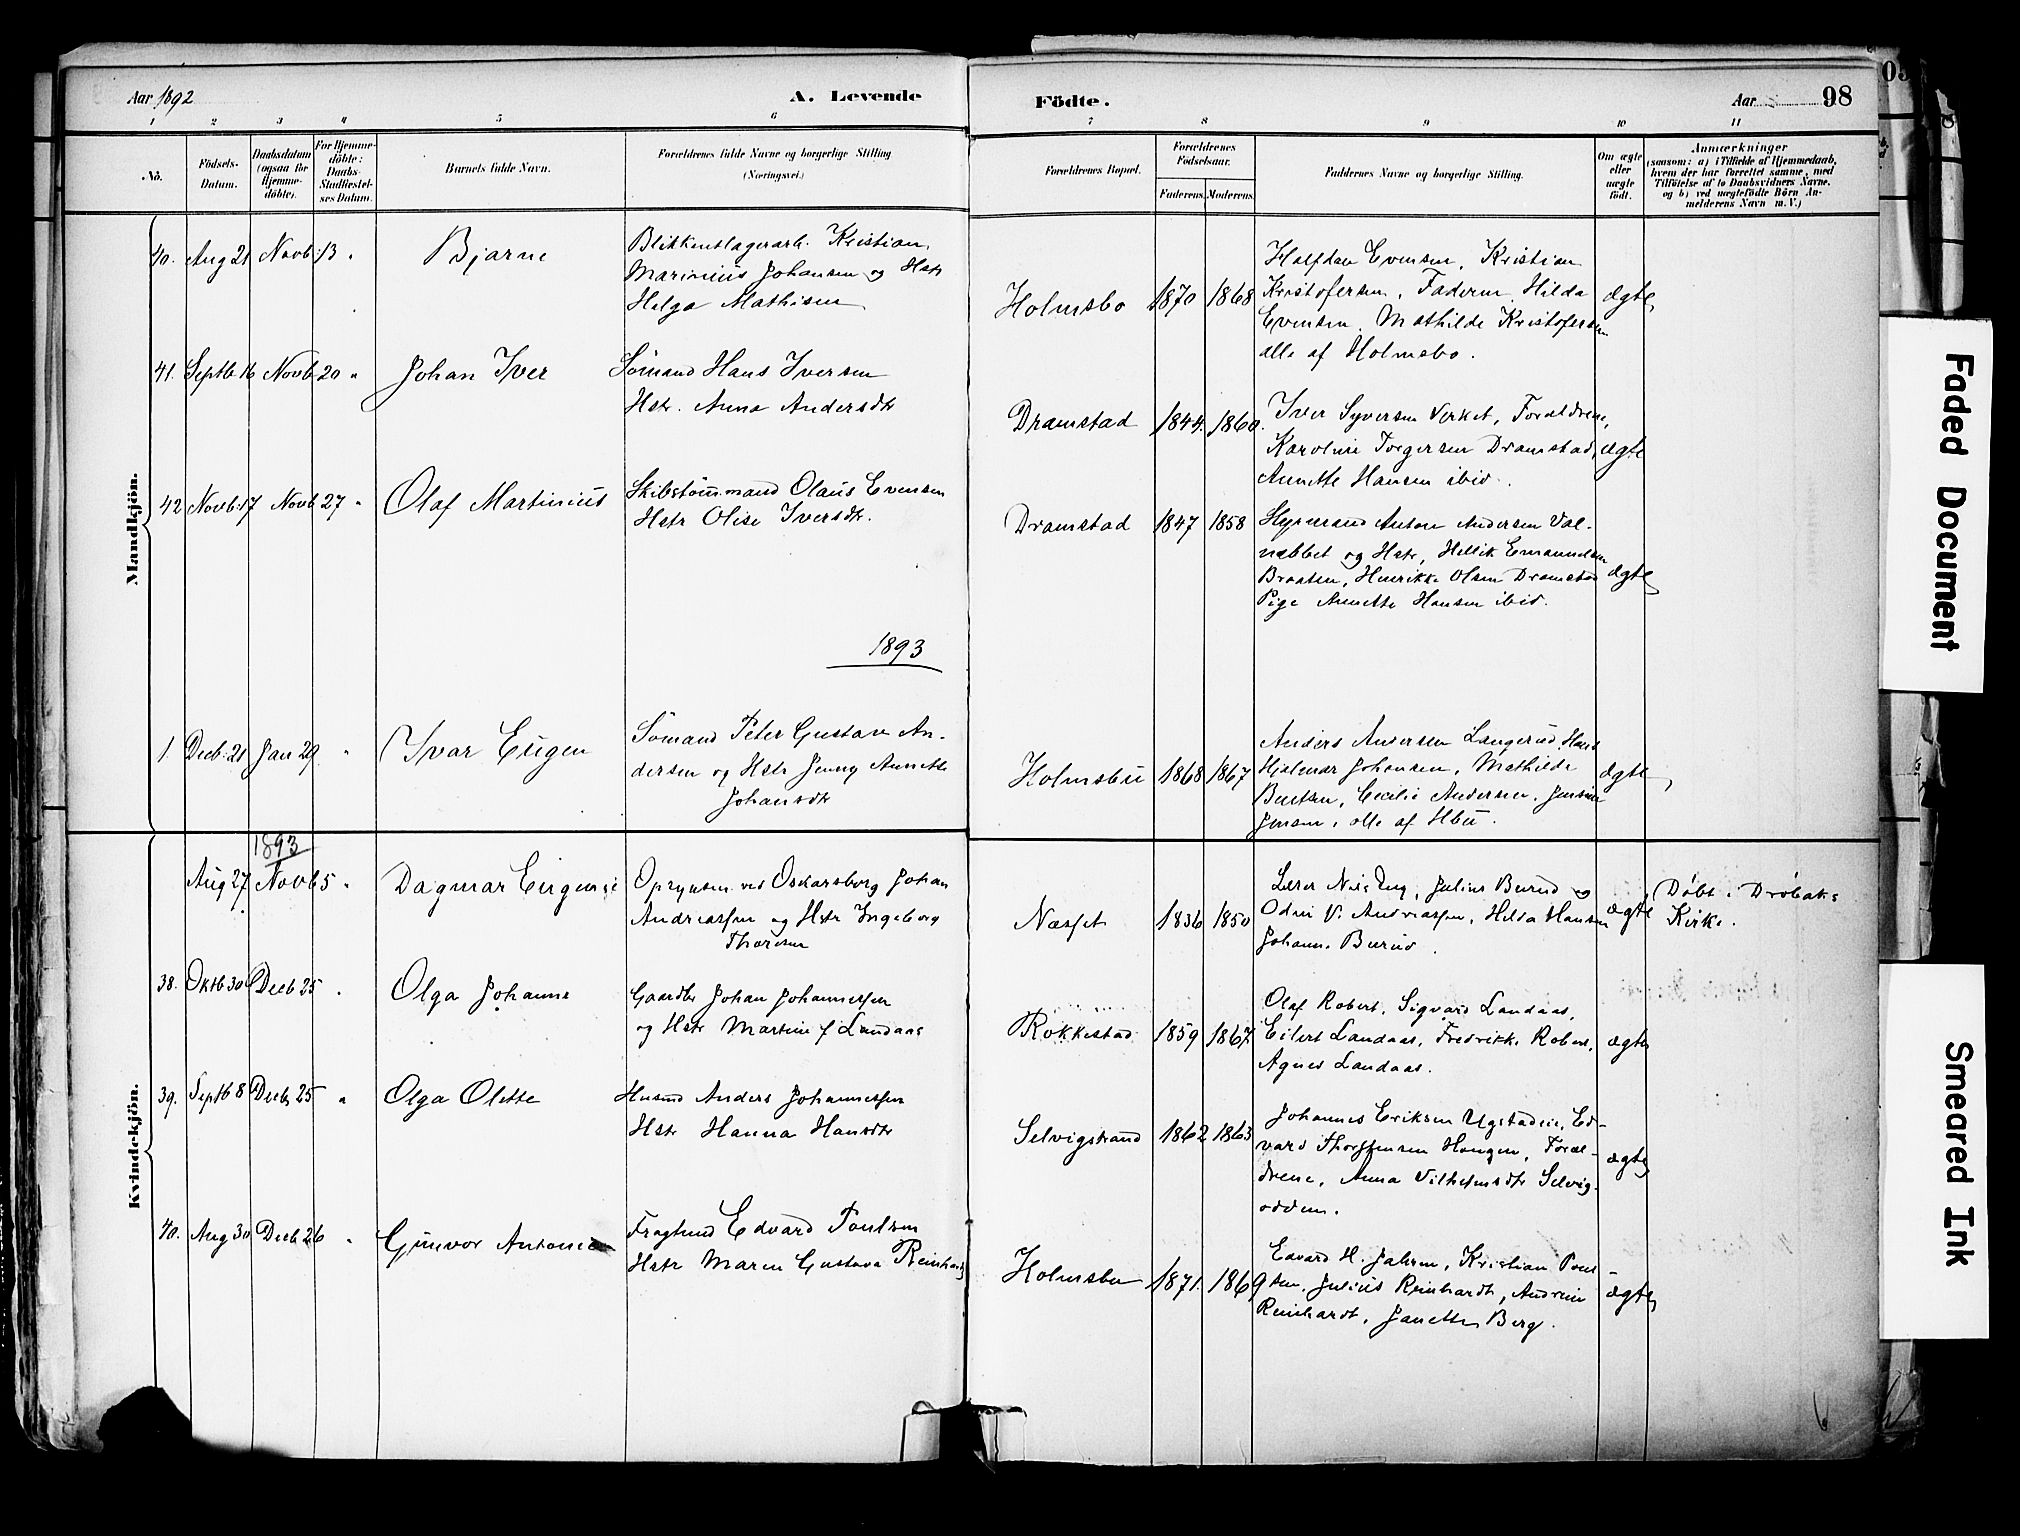 Aar 1892
A. Levende
Födte.
Aar
98
1 2 3 4 5 6 7 8 9 10 11
No.
Födsels-
Datum.
Daabsdatum
(ogsaa for
Hjemme-
döbte).
For Hjemme-
döbte:
Daabs-
Stadfæstel-
ses Datum.
Barnets fulde Navn.
Forældrenes fulde Navne og borgerlige Stilling
(Næringsvei.)
Forældrenes Bopæl.
Forældrenes
Födselsaar.
Faderens Moderens
Faddernes Navne og borgerlige Stilling.
Om ægte
eller
uægte
födt.
Anmærkninger
(saasom: a) i Tilfælde af Hjemmedaab,
hvem der har forrettet samme, med
Tilföielse af to Daabsvidners Navne,
og b) ved uægtefödte Börn An-
melderens Navn m. V.)
Mandkjön.
40. Aug 21 Novb: 13 "
Bjarne
Blikkenslagerarb. Kristian
Marinius Johansen og Hstr
Helga Mathisen
Holmsbo 1870 1868
Halfdan Evensen, Kristian
Kristofersen, Faderen, Hilda
Evensen, Mathilde Kristofersen
alle af Holmsbo.
ægte
41. Septb 16 Novb 20 "
Johan Iver
Sömand Hans Iversen
Hstr. Anna Andersdtr
Dramstad 1844. 1860.
Iver Syversen Verket, Forældrene,
Karoline Torgersen Dramstad,
Annette Hansen ibid.
ægte
42 Novb: 17 Novb 27 "
Olaf Martinius
Skibstömmand Olaus Evensen
Hstr Olise Iversdtr.
Dramstad 1847 1858
Anton Andersen Val-
nebbet og Hstr, Hellik Emanuelsen
Braaten, Henrikke Olsen Dramstad
Pige Annette Hansen ibid.
ægte
1893
1. Decb: 21 Jan 29 "
Ivar Eugen
Sömand Peter Gustav An-
dersen og Hstr Jenny Annette
Johansdtr
Holmsbu 1868 1867
Anders Andersen Langerud, Hans
Hjalmar Johansen, Mathilde
Berntsen, Cecilie Andersen, Jensine
Jensen, alle af Hbu.
ægte
Kvindekjön.
1893
Aug 27 Novb 5 "
Dagmar Eugenie
Opsynsm. ved Oskarsborg Johan
Andreassen og Hstr Ingeborg
Thoresen
Næsset 1836 1850
Julius Burud og
Odin V. Andreassen, Hilda Hansen
Johanne Burud.
ægte
Döbt i Dröbaks
Kirke.
38. Oktb 30 Decb 25 "
Olga Johanne
Gaardbr Johan Johannessen
og Hstr Martine f Landaas
Rokkestad 1859 1867
Olaf Robert, Sigvard Landaas,
Eilert Landaas, Fredrikke Robert,
Agnes Landaas.
ægte
39. Septb 8 Decb 25 "
Olga Olette
Husmd Anders Johannessen
Hstr Hanna Hansdtr
Selvigstrand 1862 1863
Johannes Eriksen Ugstadeie, Ed-
vard Thorstensen Haugen, Foræl-
drene, Anna Vilhelmsdtr Selvig-
odden.
ægte
40. Aug 30 Decb 26 "
Gunvor Antonie
Fragtmd Edvard Poulsen
Hstr Maren Gustava Reinhardt
Holmsbu 1871. 1869
Edvard H. Jahren, Kristian Poul-
sen, Julius Reinhardt, Andrine
Reinhardt, Janette Berg.
ægte
Faded Document
Smeared Ink